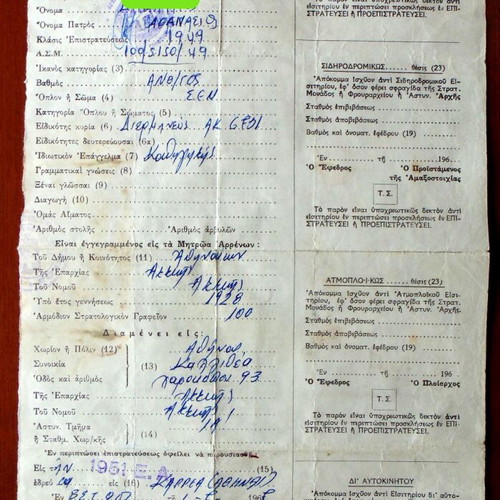 Ὄνομα
Ὄνομα Πατρὸς ΑΘΑΝΑΣΙΟΣ
Κλάσις Ἐπιστρατεύσεως 1949
Α.Σ.Μ. 100/5150/49
Ἱκανὸς κατηγορίας (3)
Βαθμὸς ΑΝΘ/ΓΟΣ
Ὅπλον ἢ Σῶμα (4) ΣΕΝ
Κατηγορία Ὅπλου ἢ Σώματος (5)
Εἰδικότης κυρία (6) Διερμηνεὺς ΑΚ
Εἰδικότητες δευτερεύουσαι (6α)
Ἰδιωτικὸν Ἐπάγγελμα (7) Καθηγητὴς
Γραμματικαὶ γνώσεις (8)
Ξέναι γλῶσσαι (9)
Διαγωγὴ (10)
Ὁμὰς Αἵματος
Ἀριθμὸς στολῆς Ἀριθμὸς ἀρβυλῶν
Εἶναι ἐγγεγραμμένος εἰς τὰ Μητρῷα Ἀρρένων :
Τοῦ Δήμου ἢ Κοινότητος (11) Ἀθηναίων
Τῆς Ἐπαρχίας Ἀττικῆς
Τοῦ Νομοῦ Ἀττικῆς
Ὑπὸ ἔτος γεννήσεως 1928
Ἁρμόδιον Στρατολογικὸν Γραφεῖον 100
Διαμένει εἰς:
Χωρίον ἢ Πόλιν (12) Ἀθήνας
Συνοικία (13) Καλλιθέα
Ὁδὸς καὶ ἀριθμὸς 93
Τῆς Ἐπαρχίας Ἀττικῆς
Τοῦ Νομοῦ Ἀττικῆς
Ἀστυν. Τμῆμα
ἢ Σταθμ. Χωρ/κῆς (14)
Ἐν περιπτώσει ἐπιστρατεύσεως ὀφείλει νὰ παρουσιασ
Εἰς τὴν 1951 Ε.Α. (15)
ἕδρα (16)
Ἐν
ΣΤΡΑΤΕΥΣΕΙ ἢ ΠΡΟΕΠΙΣΤΡΑΤΕΥΣΕΙ.
ΣΙΔΗΡΟΔΡΟΜΙΚΩΣ θέσις (23)
"Απόκομμα Ἰσχῦον ἀντὶ Σιδηροδρομικοῦ Εἰ-
σιτηρίου, ἐφ' ὅσον φέρει σφραγῖδα τῆς Στρατ.
Μονάδος ἢ Φρουραρχείου ἢ "Αστυν. Ἀρχῆς
Σταθμὸς ἐπιβιβάσεως
Σταθμὸς ἀποβιβάσεως
Βαθμὸς καὶ ὀνοματ. ἐφέδρου (19)
Ἐν 196
Ὁ Ἔφεδρος Ὁ Προϊστάμενος
τῆς Ἁμαξοστοιχίας
Τ.Σ.
Τὸ παρὸν εἶναι ὑποχρεωτικῶς δεκτὸν ἀντὶ
εἰσιτηρίου ἐν περιπτώσει προσκλήσεως ἐν ΕΠΙ-
ΣΤΡΑΤΕΥΣΕΙ ἢ ΠΡΟΕΠΙΣΤΡΑΤΕΥΣΕΙ.
ΑΤΜΟΠΛΟ-Ι-ΚΩΣ θέσις (23)
"Απόκομμα Ἰσχῦον ἀντὶ Ἀτμοπλοϊκοῦ Εἰσι-
τηρίου, ἐφ' ὅσον φέρει σφραγῖδα τῆς Στρατ.
Μονάδος ἢ Φρουραρχείου ἢ "Αστυν. Ἀρχῆς.
Σταθμὸς ἐπιβιβάσεως
Σταθμὸς ἀποβιβάσεως
Βαθμὸς καὶ ὀνοματ. ἐφέδρου (19)
Ἐν 196
Ὁ Ἔφεδρος Ὁ Πλοίαρχος
Τ.Σ.
Τὸ παρὸν εἶναι ὑποχρεωτικῶς δεκτὸν ἀντὶ
εἰσιτηρίου ἐν περιπτώσει προσκλήσεως ἐν ΕΠΙ-
ΣΤΡΑΤΕΥΣΕΙ ἢ ΠΡΟΕΠΙΣΤΡΑΤΕΥΣΕΙ.
ΔΙ' ΑΥΤΟΚΙΝΗΤΟΥ